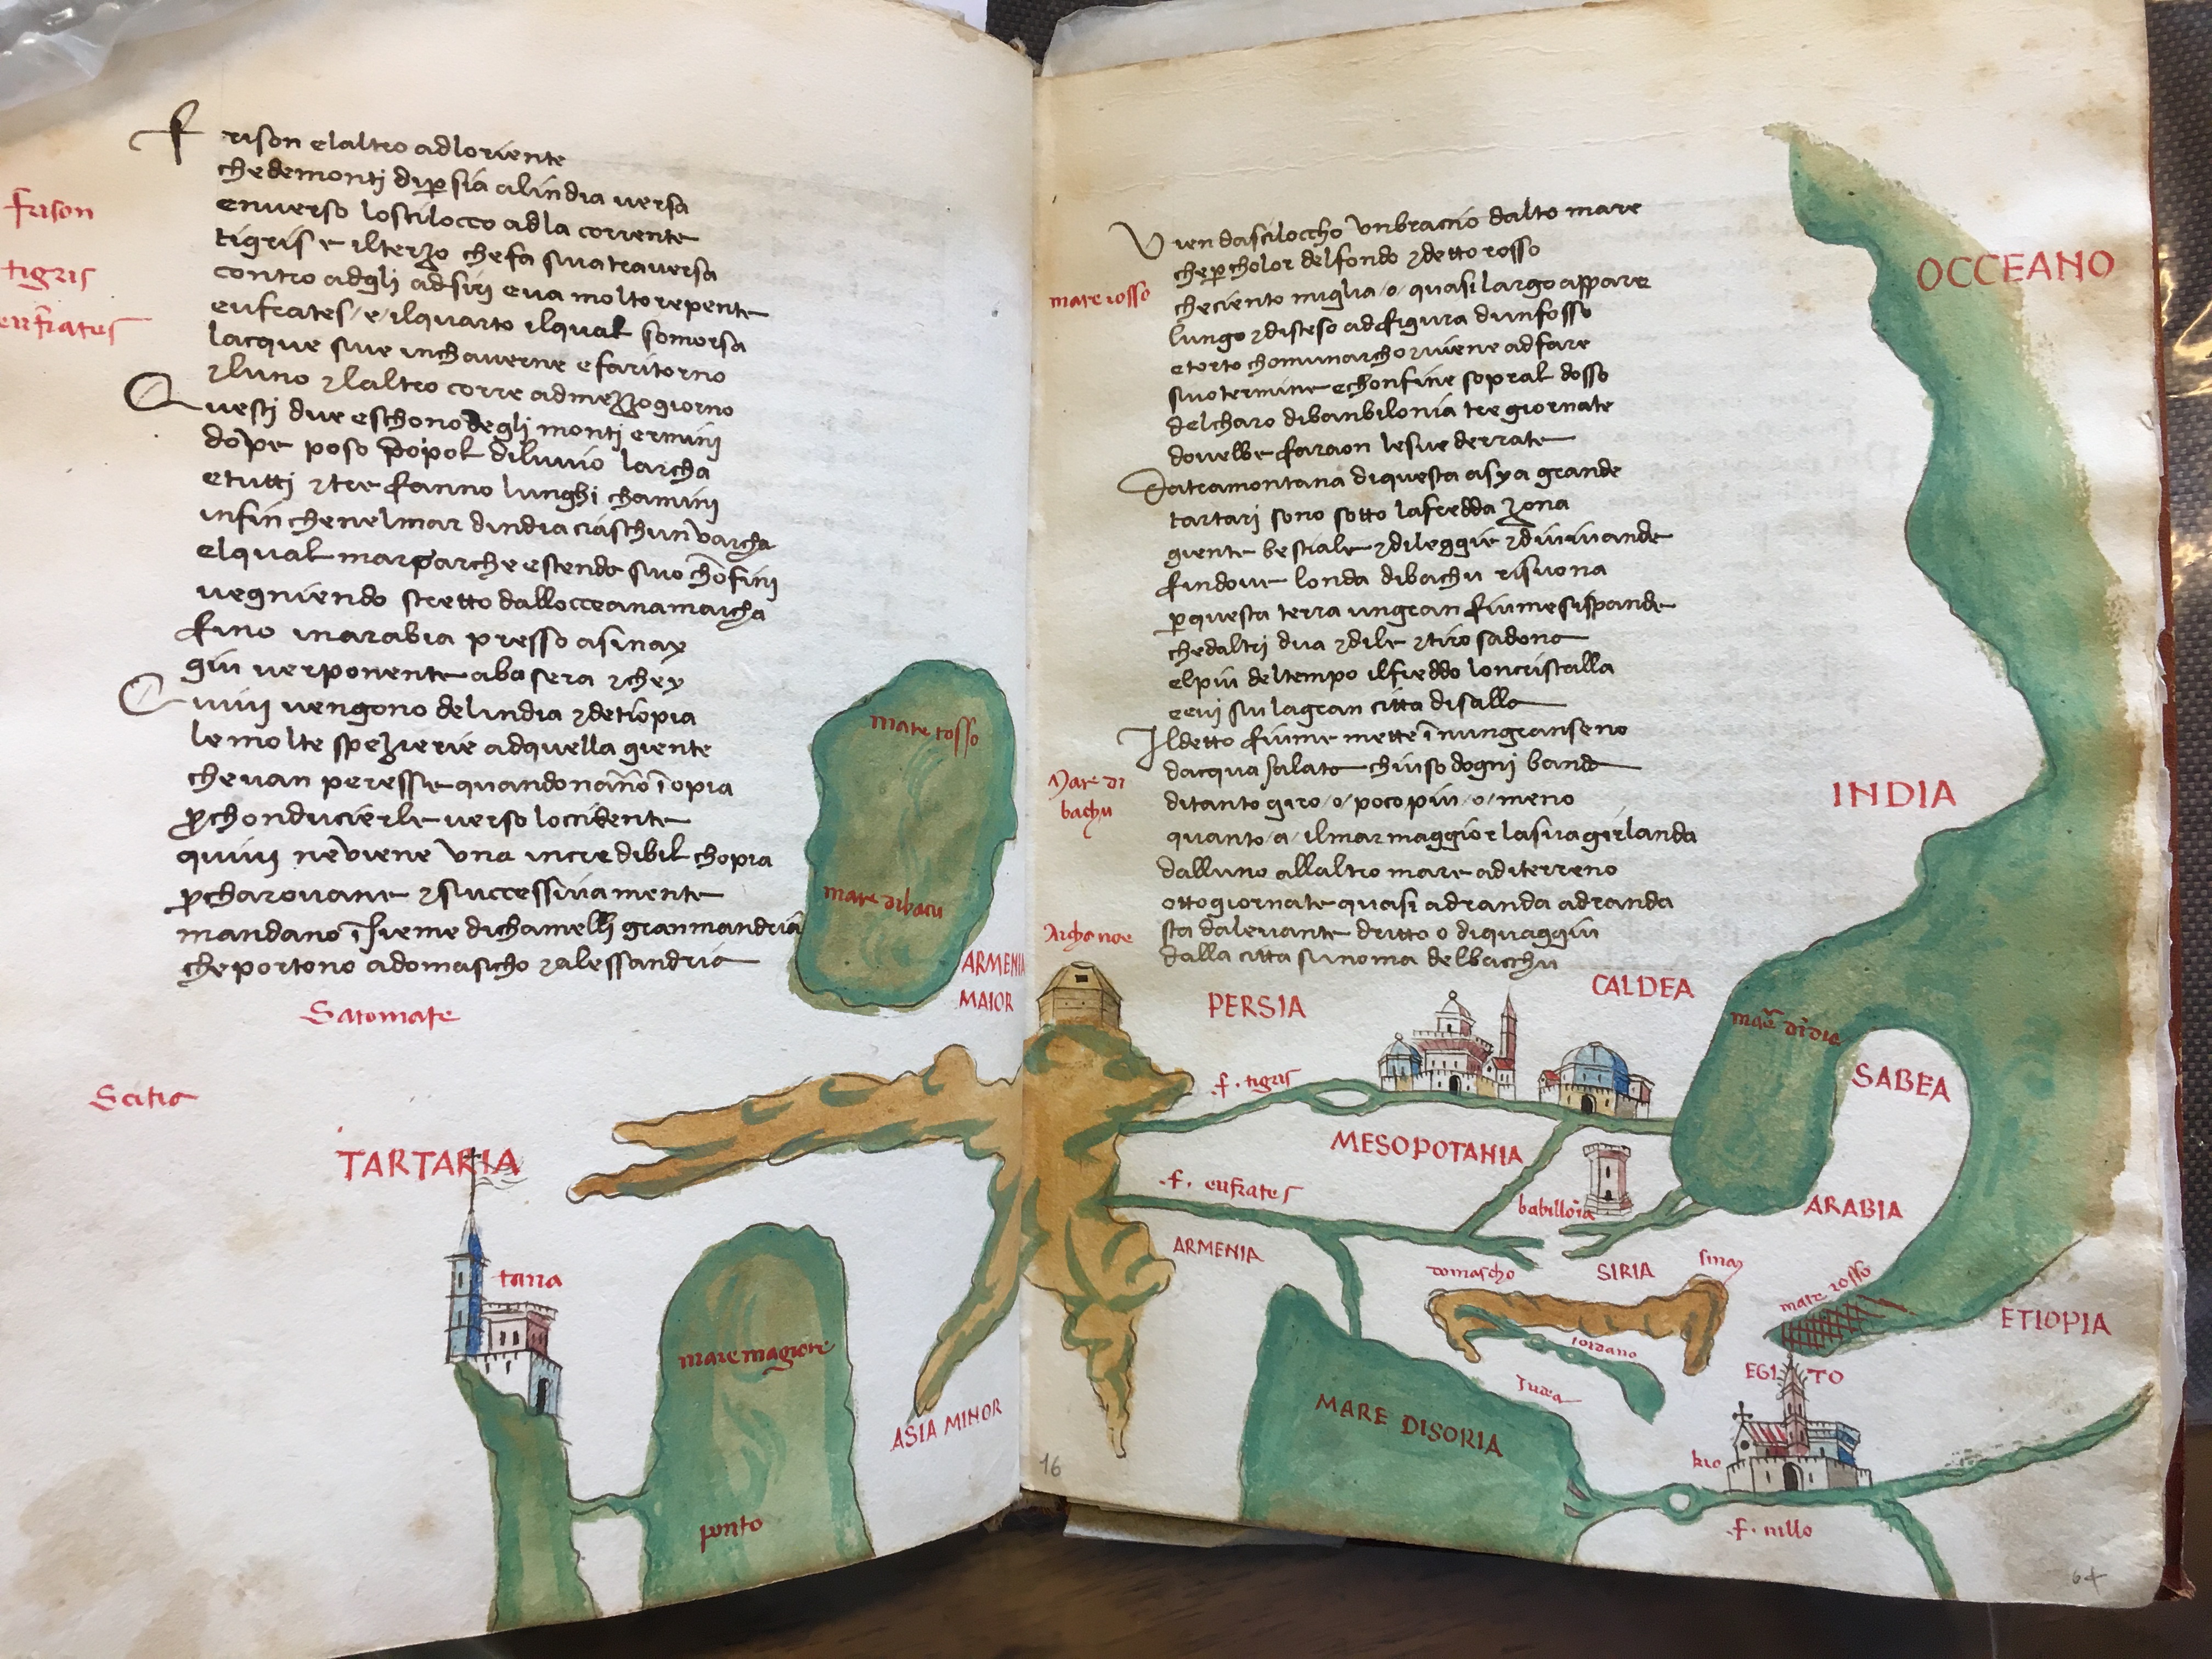 frison
tigris
eufrates
Frison elaltro adloriente
chedemonti dipersia alindia versa
enverso loscilocco adla corrente
tigris e ilterzo chefa suatraversa
contro adgli adsiri eva moltorepente
eufrates/e/ilquarto ilqual somorsa
lacque sue inchaverne efaritorno
⁊luno ⁊laltro corre admezzogiorno
Questi due eschono degli monti ermini
dope poso popol diluvio larcha
etutti ⁊tre fanno lunghi chamini
infin chenelmar dindia ciaschun varcha
elqual mar parche estenda suo chōfini
vegniendo stretto dallocceanamarcha
fino inarabia presso asinay
giu verponente aba sera ⁊chey
Quivi vengono delindia ⁊detiopia
lemolte spezierie adquella giente
chevan peresse quandonānō īopia
p̄chonducierle verso loccidente
quivi neviene una incredibil chopia
p̄charovane ⁊successivamente
mandano īsieme dichamelli granmandria
cheportono adomascho ⁊alessandria
mare rosso
mare dibacu
ARMENIA
MAIOR
Saromate
Scitia
TARTARIA
tana
mare magiore
ponto
ASIA MINOR
Vien dascilocho unbraccio dalto mare
cheper cholor delfondo ⁊detto rosso
checiento miglia/o/quasi largo appare
lungo ⁊disteso adfigura dunfosso
etorto chomunarcho ⁊viene adfare
suotermine echonfine sopral dosso
delcharo dibanbilonia tre giornate
dovebbe faraon lesue derrate
Datramontana diquesta asya grande
tartari sono sotto lafredda zona
giente bestiale ⁊dileggie ⁊divivande
findove londa dibachu risuona
perquesta terra ungran fiumesispande
chedaltri dua ⁊dile ⁊tiro sadona
elpiu deltempo ilfreddo loncristalla
eevi su lagran citta disalla
Ildetto fiume mette īnungranseno
dacqua salata chiuso dogni banda
ditanto giro/o/poco piu/o/meno
quanto/a/ilmar maggior lasua girlanda
dalluno allaltro mare aditerreno
ottogiornate quasi adranda adranda
sta dalevante dritto o diquaggiu
dalla citta sinoma delbacchu
mare rosso
Mare di
bachu
Archa noe
OCCEANO
INDIA
PERSIA
CALDEA
mare dīdia
SABEA
f. tigris
MESOPOTANIA
f. eufrates
babillōia
ARABIA
ARMENIA
domascho
SIRIA
sinay
mare rosso
ETIOPIA
iordano
EGITTO
Iudea
MARE DISORIA
f. nillo
16
64